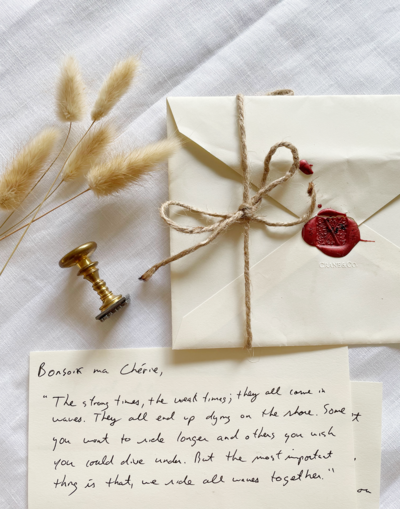 Bonsoir ma Chérie,
"The strong times, the weak times; they all come in
waves. They all end up dying on the shore. Some
you want to ride longer and others you wish
you could dive under. But the most important
thing is that, we ride all waves together."